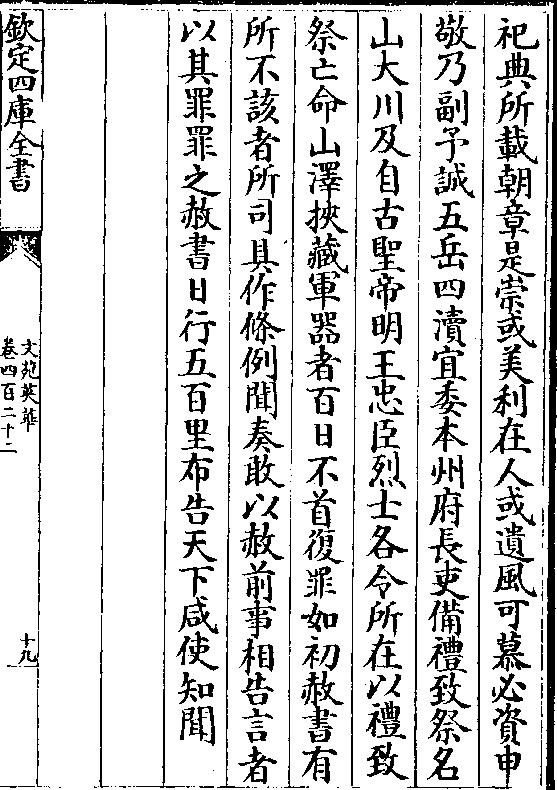 祀典所載朝章是崇或美利在人或遺風可慕必資申
敬乃副予誠五岳四瀆宜委本州府長吏備禮致祭名
山大川及自古聖帝明王忠臣烈士各令所在以禮致
祭亡命山澤挾藏軍器者百日不首復罪如初赦書有
所不該者所司具作條例聞奏敢以赦前事相告言者
以其罪罪之赦書日行五百里布告天下咸使知聞
欽定四庫全書
文苑英華
卷四百二十二
十九